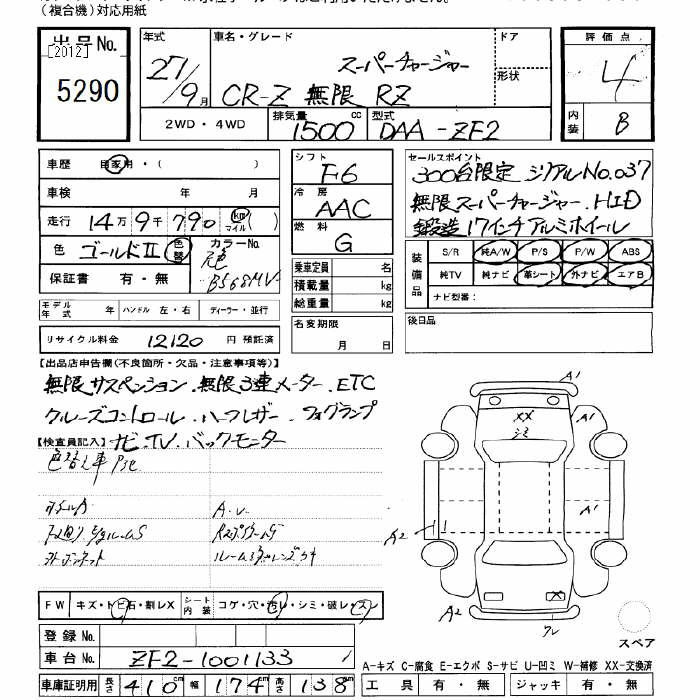 （複合機）対応用紙
出品No.
[2012]
5290
年式
27/9月
車名・グレード
スーパーチャージャー
CR-Z 無限 RZ
ドア
形状
評価点
4
内装
B
2WD・4WD
排気量
1500 cc
型式
DAA-ZF2
車歴 自家用・（ ）
車検 年 月
走行 14万9千790 km マイル ( )
色 ゴールドII 色替 カラーNo.
B568M
保証書 有・無
モデル年式 年 ハンドル 左・右 ディーラー・並行
リサイクル料金 12120 円 預託済
シフト
F6
冷房
AAC
燃料
G
乗車定員 名
積載量 kg
総重量 kg
名変期限
月 日
セールスポイント
300台限定 シリアルNo.037
無限スーパーチャージャー.HID
鍛造17インチアルミホイール
装備品
S/R 純A/W P/S P/W ABS
純TV 純ナビ 革シート 外ナビ エアB
ナビ型番：
後日品
【出品店申告欄(不良箇所・欠品・注意事項等)】
無限サスペンション.無限3連メーター.ETC
クルーズコントロール.ハーフレザー.フォグランプ
【検査員記入】 ナビ.TV.バックモニター
色替え車
FW キズ・トビ石・割レX シート内装 コゲ・穴・汚レ・シミ・破レ・スレ
登録No.
車台No. ZF2-1001133
車庫証明用 長さ 410 cm 幅 174 cm 高さ 138 cm
A1
XX
シミ
A1
A1
A2
A2
X
ワレ
スペア
A-キズ C-腐食 E-エクボ S-サビ U-凹ミ W-補修 XX-交換済
工具 有・無 ジャッキ 有・無